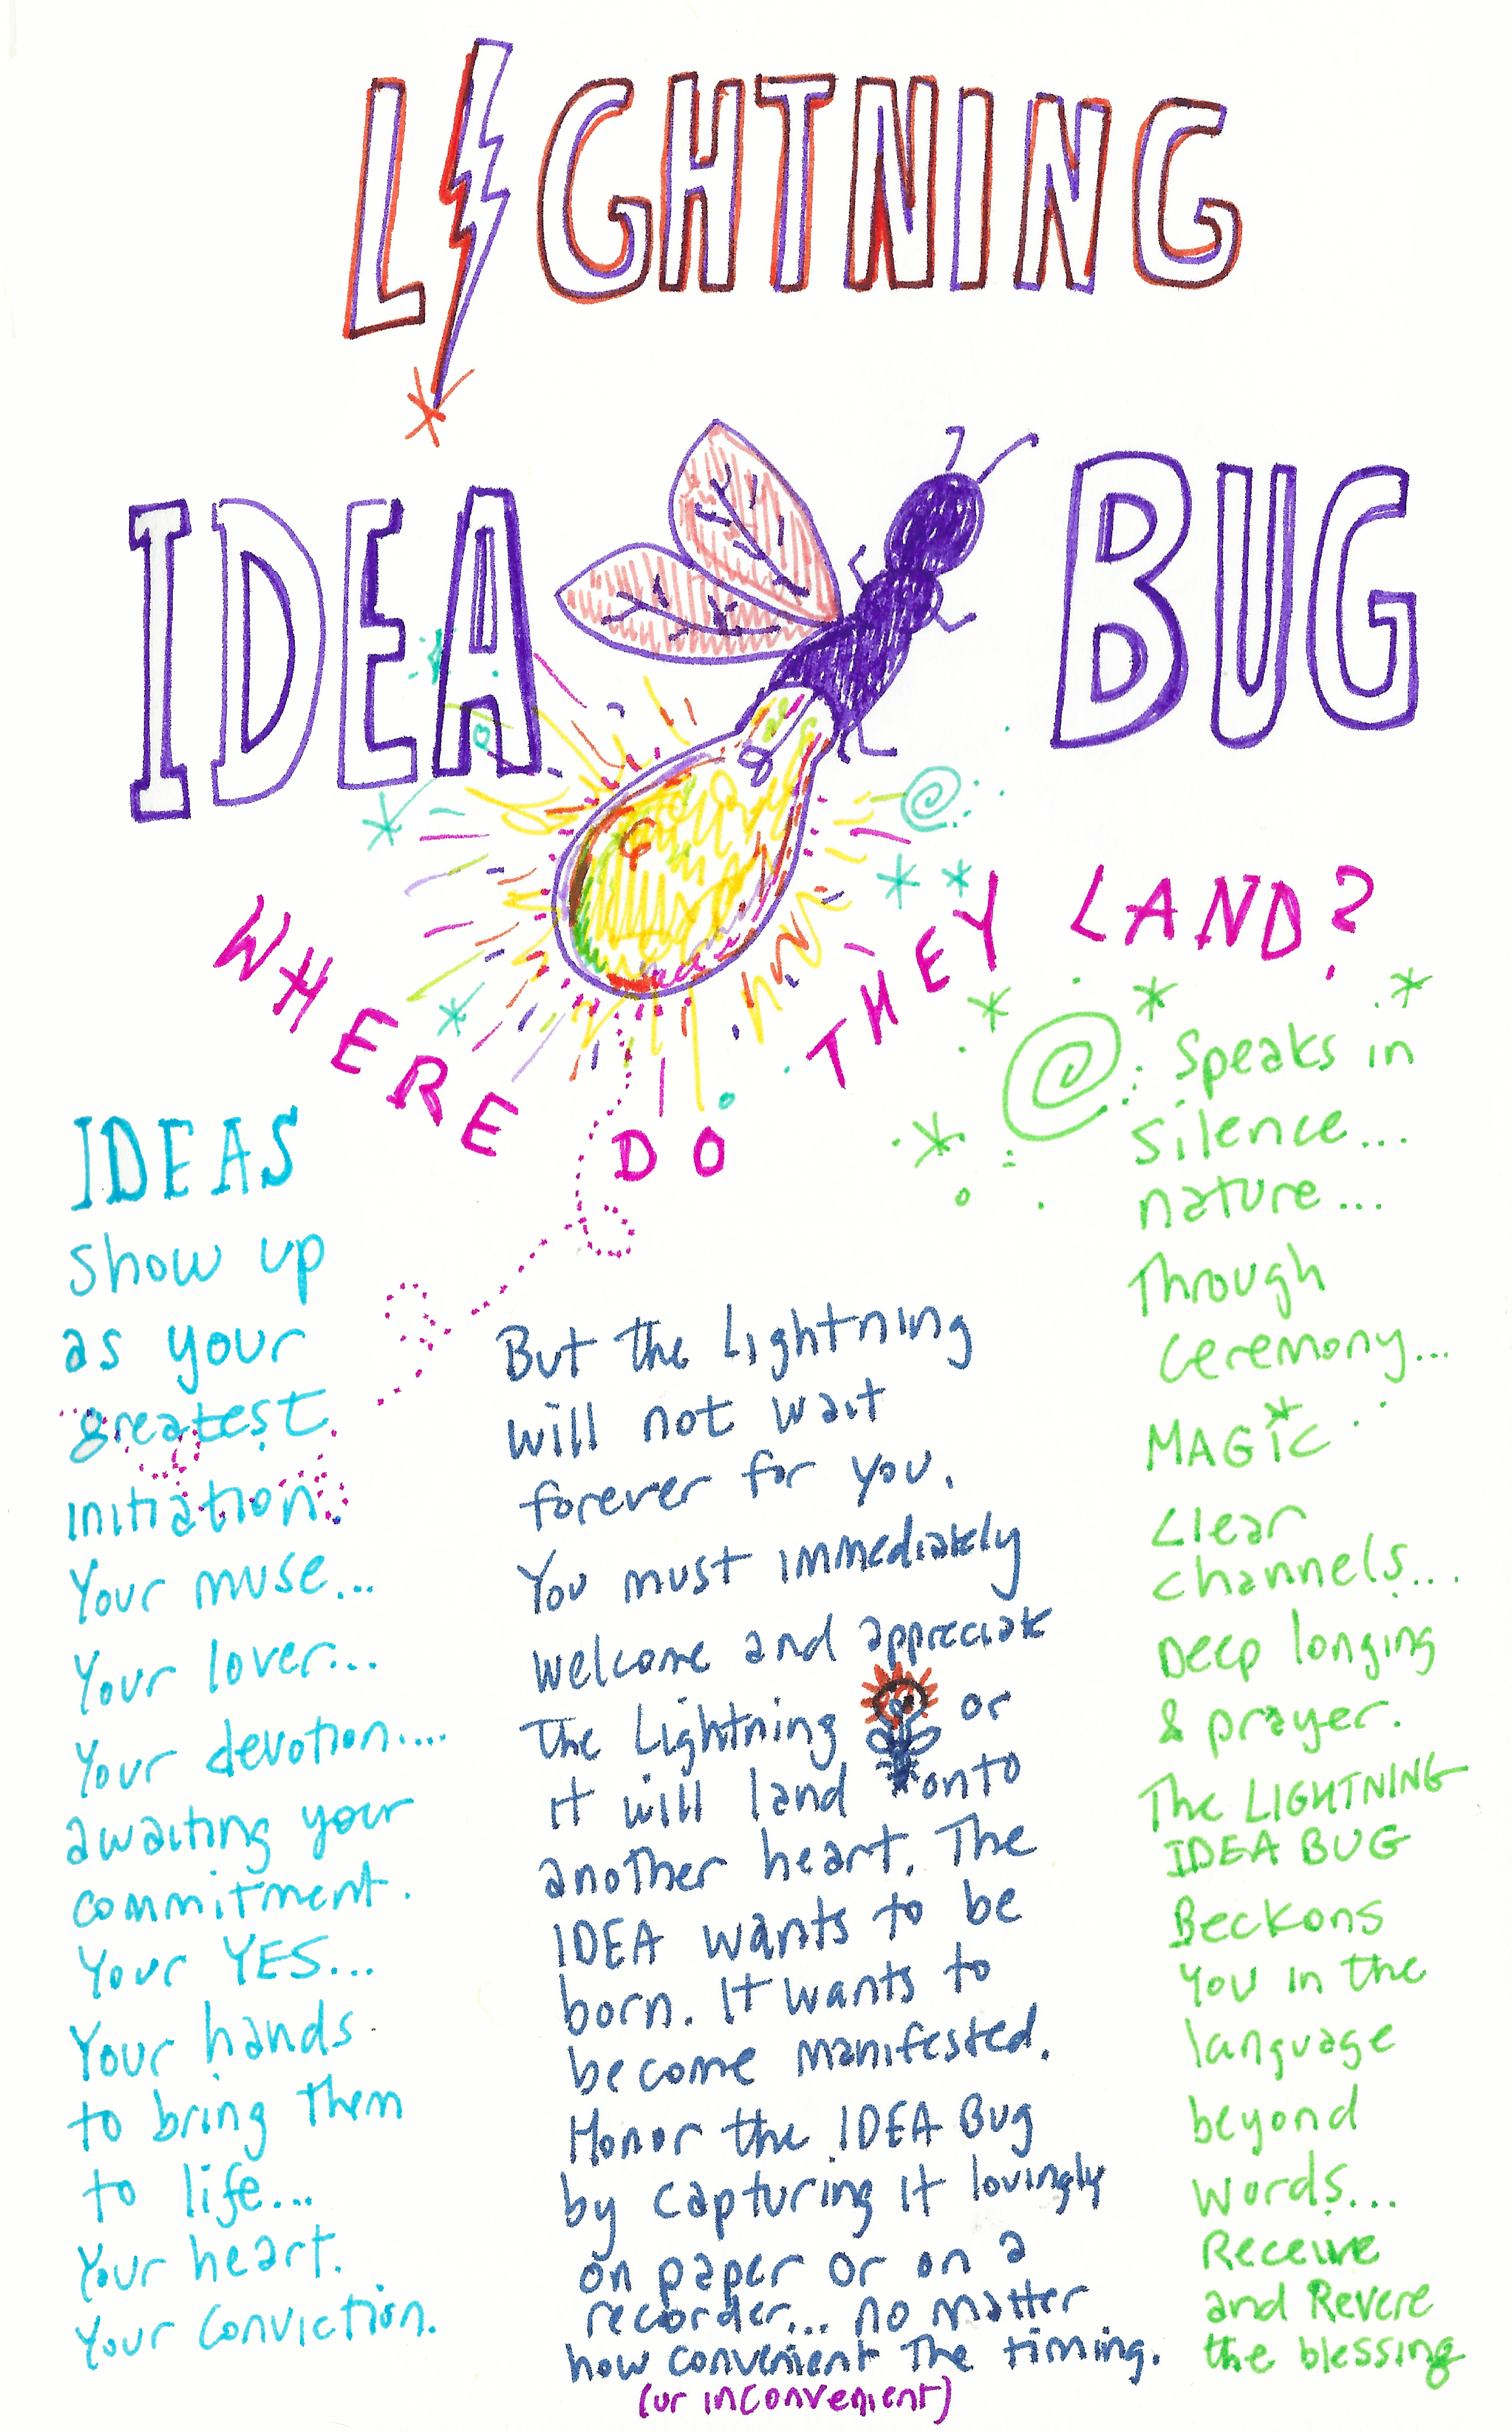 LIGHTNING
IDEA BUG
WHERE DO THEY LAND?
IDEAS
show up
as your
greatest
initiation.
Your muse...
Your lover...
Your devotion....
awaiting your
commitment.
Your YES...
Your hands
to bring them
to life...
Your heart.
Your conviction.
But the Lightning
will not wait
forever for you.
You must immediately
welcome and appreciate
The Lightning or
it will land onto
another heart. The
IDEA wants to be
born. It wants to
become manifested.
Honor the IDEA Bug
by capturing it lovingly
on paper or on a
recorder... no matter
how convenient the timing.
(or inconvenient)
Speaks in
silence...
nature...
Through
Ceremony...
MAGiC
Clear
channels...
Deep longing
& prayer.
The LIGHTNING
IDEA BUG
Beckons
You in the
language
beyond
words...
Receive
and Revere
the blessing